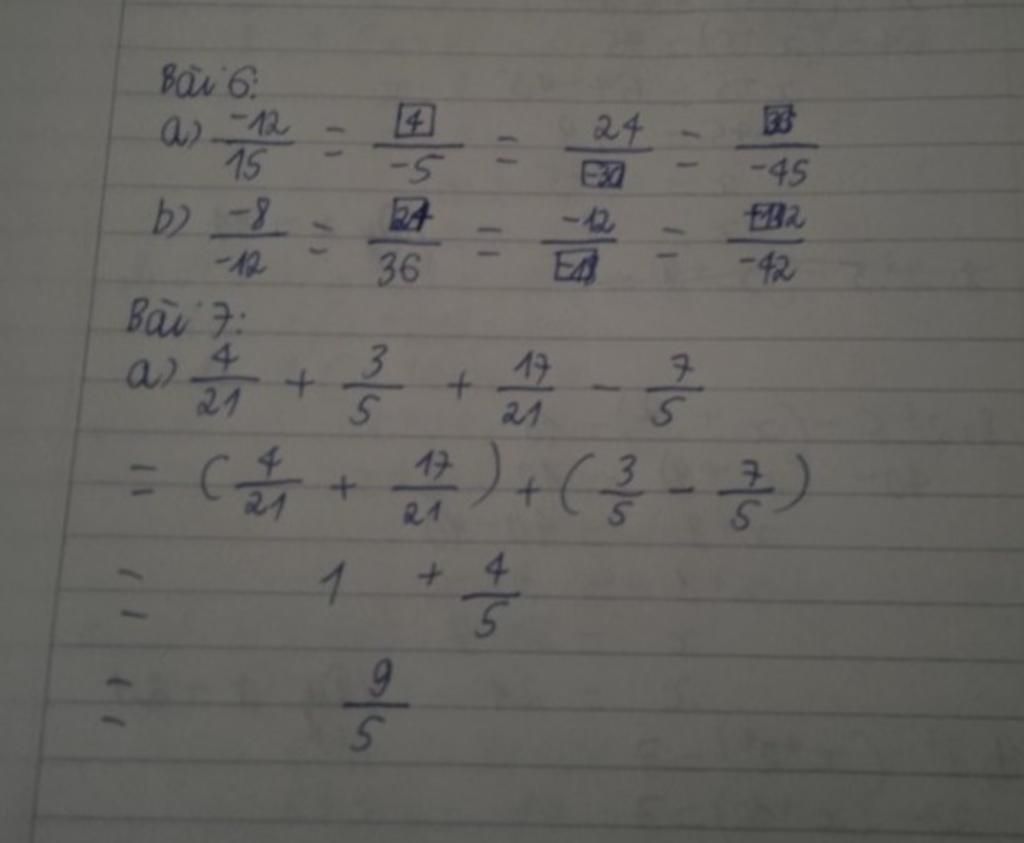 Bài 6:
a) -12/15 = 4/-5 = 24/-30 = 36/-45
b) -8/-12 = 24/36 = -12/-18 = /-42
Bài 7:
a) 4/21 + 3/5 + 17/21 - 7/5
= (4/21 + 17/21) + (3/5 - 7/5)
= 1 + 4/5
= 9/5